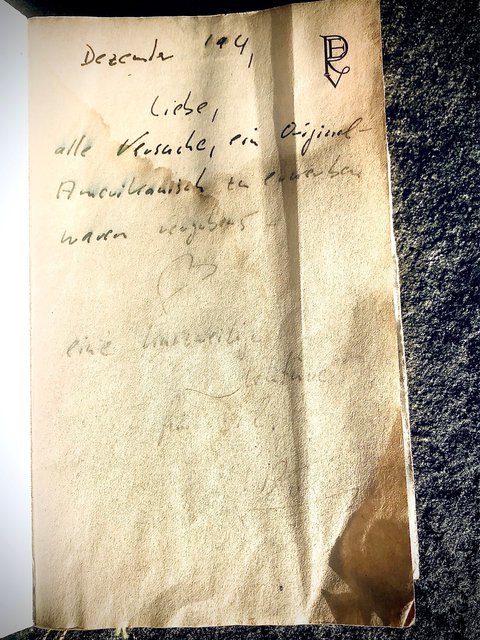 Dezember '94,
Liebe,
alle Versuche, ein Original-
Amerikanisch zu erwerben
waren vergebens -
eine kurzweilige
Lektüre
für